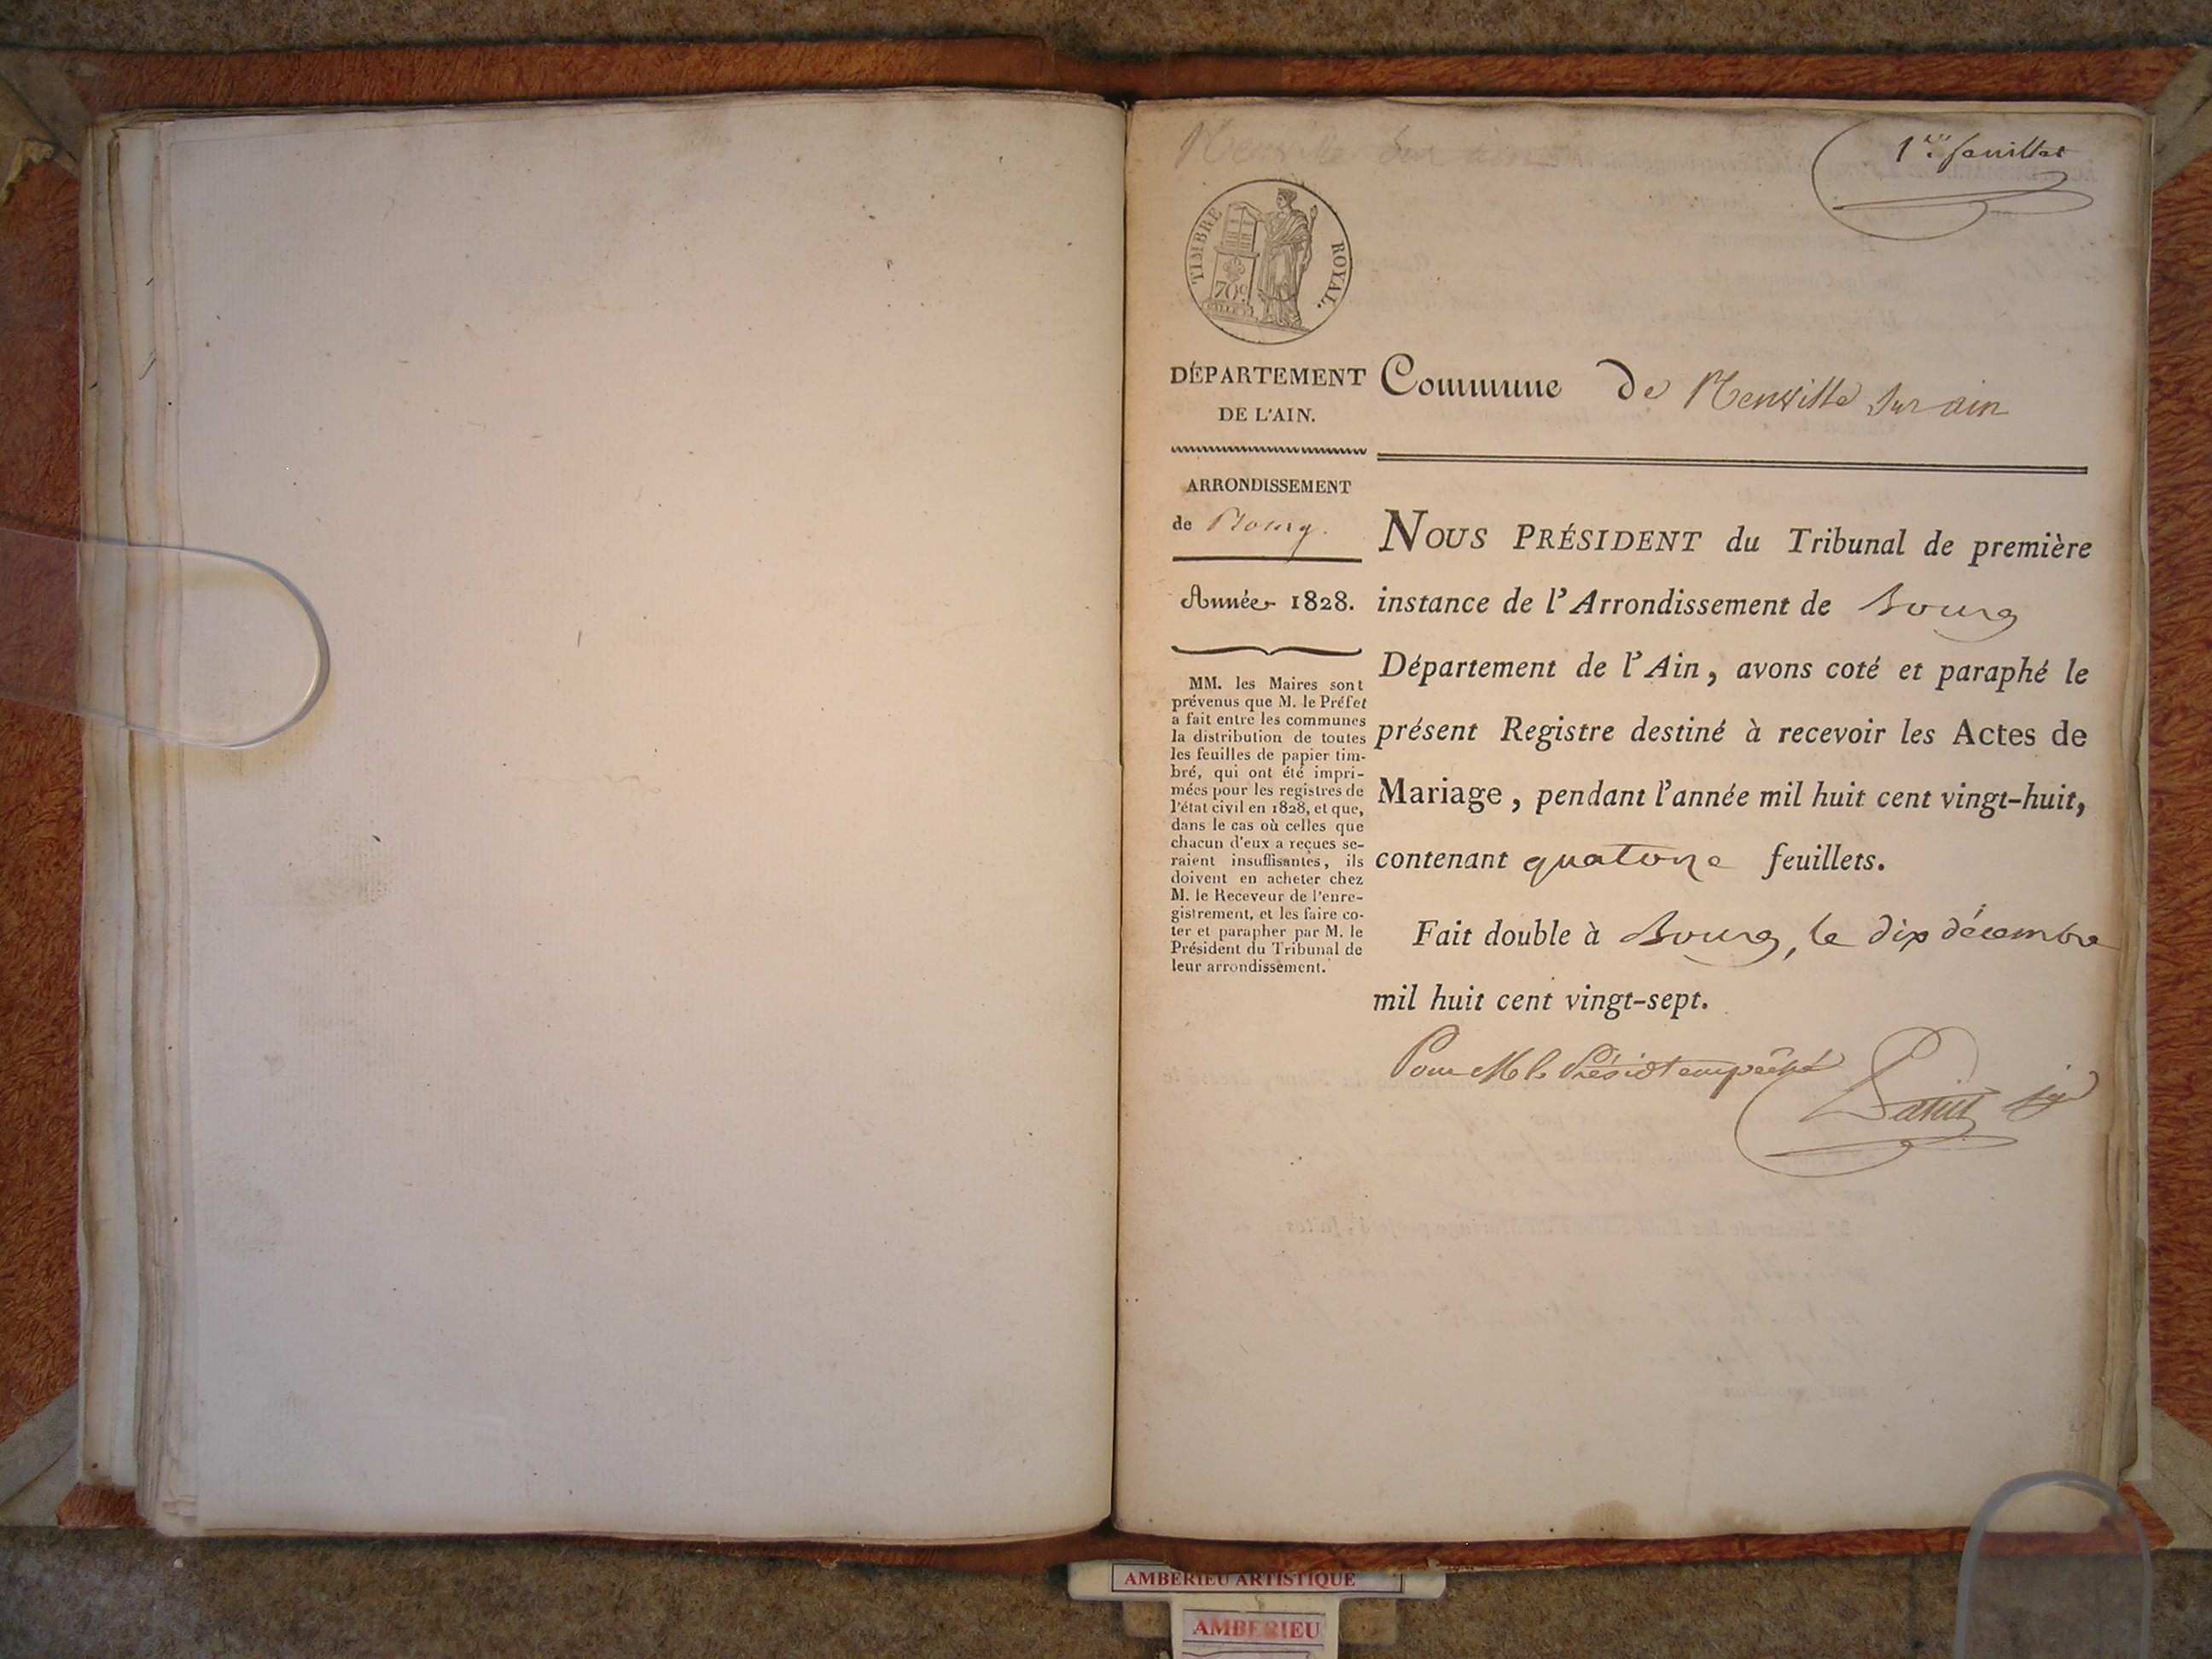 Neuville sur ain
1er feuillet
TIMBRE ROYAL.
70c
DÉPARTEMENT
DE L'AIN.
ARRONDISSEMENT
de Bourg.
Année 1828.
MM. les Maires sont
prévenus que M. le Préfet
a fait entre les communes
la distribution de toutes
les feuilles de papier tim-
bré, qui ont été impri-
mées pour les registres de
l'état civil en 1828, et que,
dans le cas où celles que
chacun d'eux a reçues se-
raient insuffisantes, ils
doivent en acheter chez
M. le Receveur de l'enre-
gistrement, et les faire co-
ter et parapher par M. le
Président du Tribunal de
leur arrondissement.
Commune De Neuville sur ain
NOUS PRÉSIDENT du Tribunal de première
instance de l'Arrondissement de Bourg
Département de l'Ain, avons coté et paraphé le
présent Registre destiné à recevoir les Actes de
Mariage, pendant l'année mil huit cent vingt-huit,
contenant quatorze feuillets.
Fait double à Bourg, le dix décembre
mil huit cent vingt-sept.
Pour M le Présidt empêché
AMBERIEU ARTISTIQUE
AMBERIEU